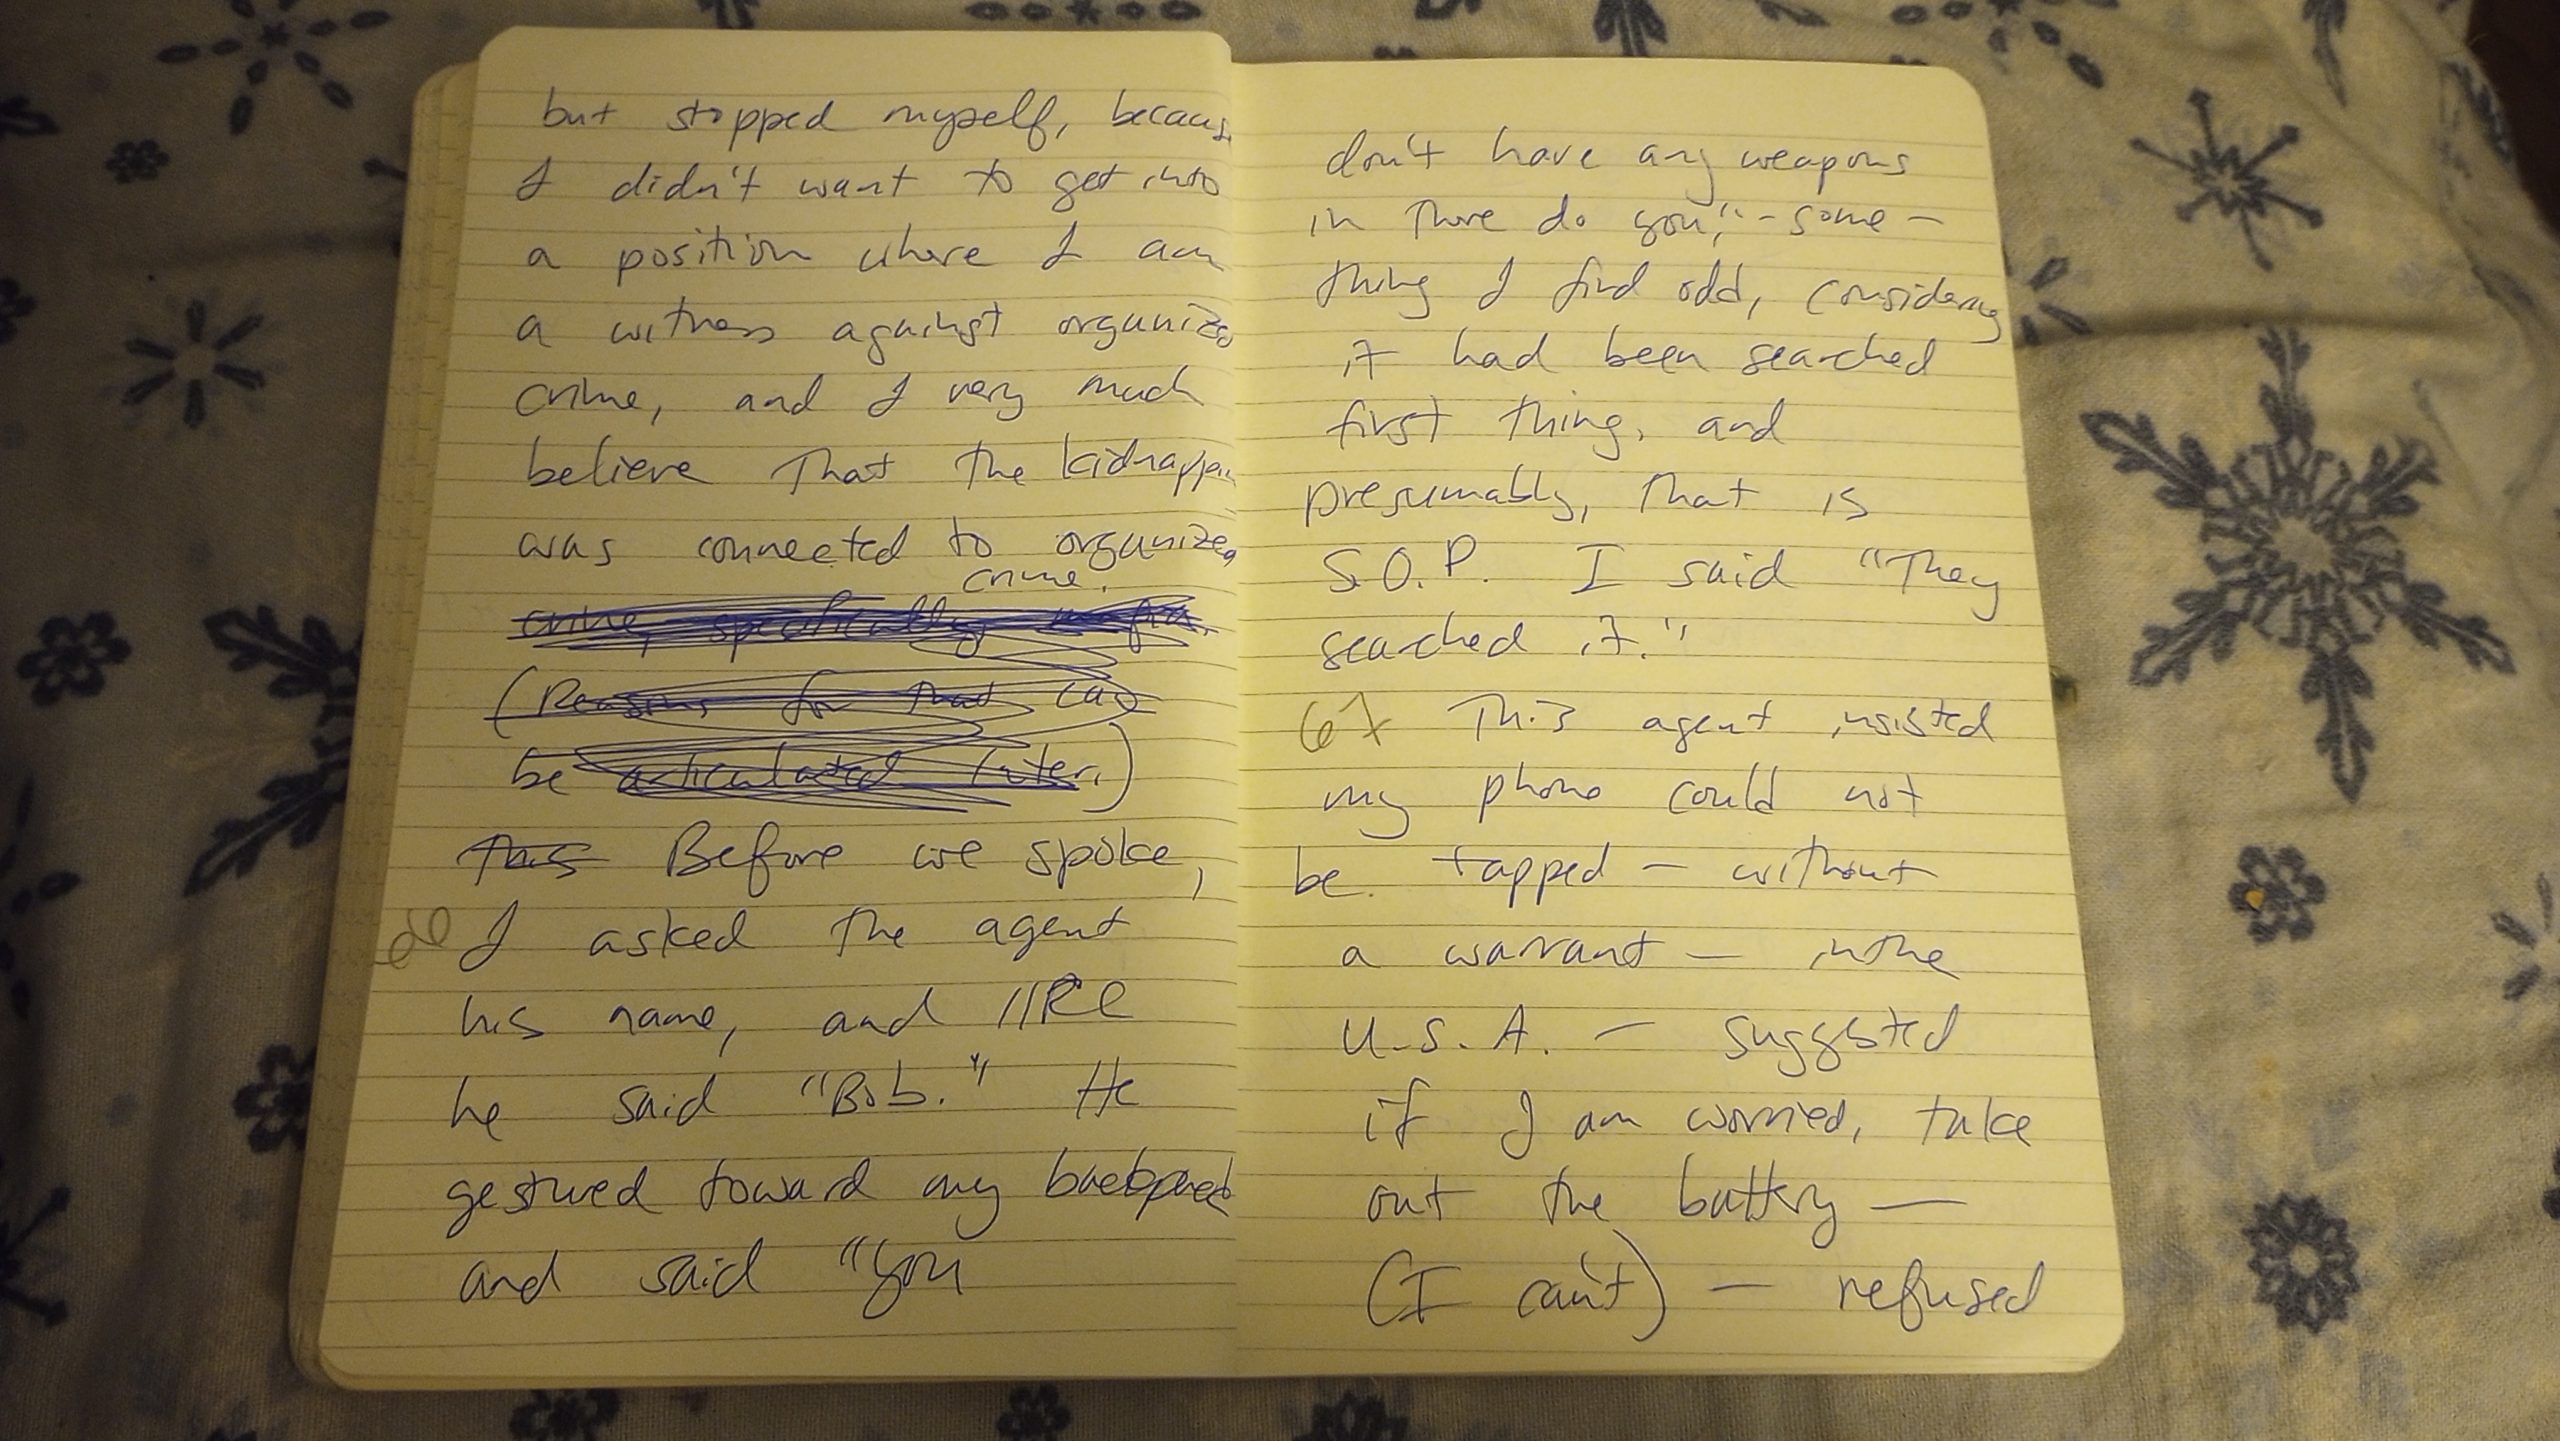 but stopped myself, becaus
I didn't want to get into
a position where I am
a witness against organize
crime, and I very much
believe that the kidnappin
was connected to organized
crime.
crime, specifically mafia.
(Reasons for that can
be articulated later.)
This Before we spoke,
66 I asked the agent
his name, and IIRC
he said "Bob." He
gestured toward my backpack
and said "you
don't have any weapons
in there do you," - some-
thing I find odd, considering
it had been searched
first thing, and
presumably, that is
S.O.P. I said "They
searched it."
67 This agent insisted
my phone could not
be tapped — without
a warrant — in the
U.S.A. — suggested
if I am worried, take
out the battery —
(I can't) — refused